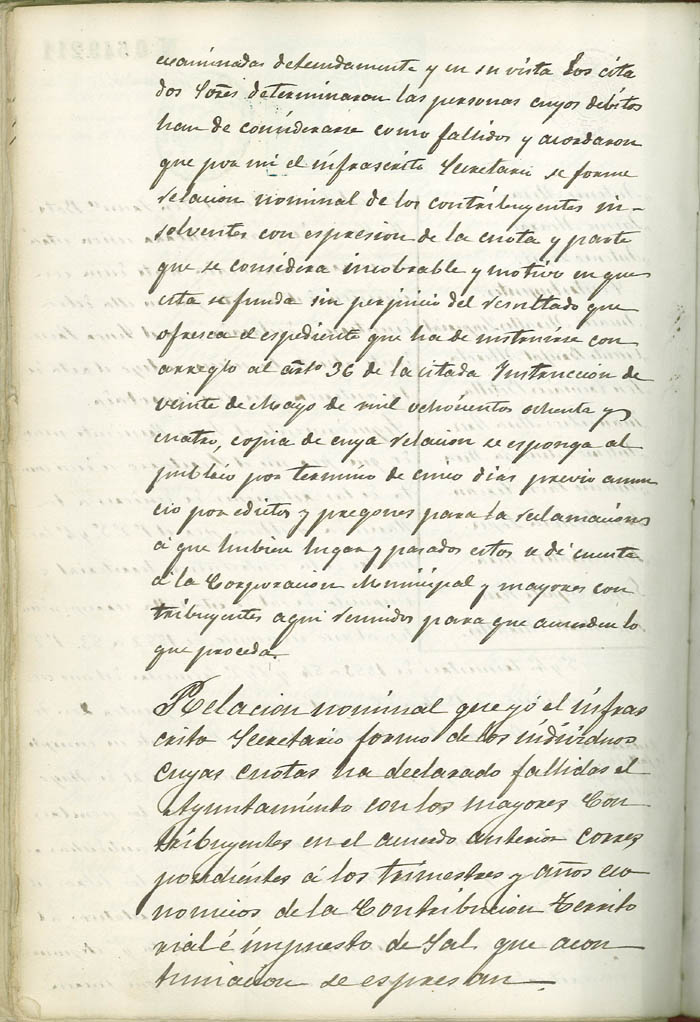 examinadas detenidamente y en su vista los cita
dos Sores determinaron las personas cuyos débitos
han de considerarse como fallidos y acordaron
que por mi el infrascrito Secretario se forme
relacion nominal de los contribuyentes in-
solventes con espresion de la cuota y parte
que se considera incobrable y motivo en que
esta se funda sin perjuicio del resultado que
ofresca el espediente que ha de instruirse con
arreglo al arto 36 de la citada Instruccion de
veinte de Mayo de mil ochocientos ochenta y
cuatro, copia de cuya relacion se esponga al
publico por termino de cinco dias previo anun
cio por edictos y pregones para la reclamaciones
á que hubiere lugar y pasados estos se dé cuenta
á la Corporacion Municipal y mayores con
tribuyentes aqui reunidos para que acuerden lo
que proceda.
Relacion nominal que yó el infras
crito Secretario formo de los individuos
cuyas cuotas ha declarado fallidas el
Ayuntamiento con los mayores Con
tribuyentes en el acuerdo anterior corres
pondientes á los trimestres y años eco
nomicos de la Contribucion Territo
rial é impuesto de Sal que acon
tinuacion se espresan—.